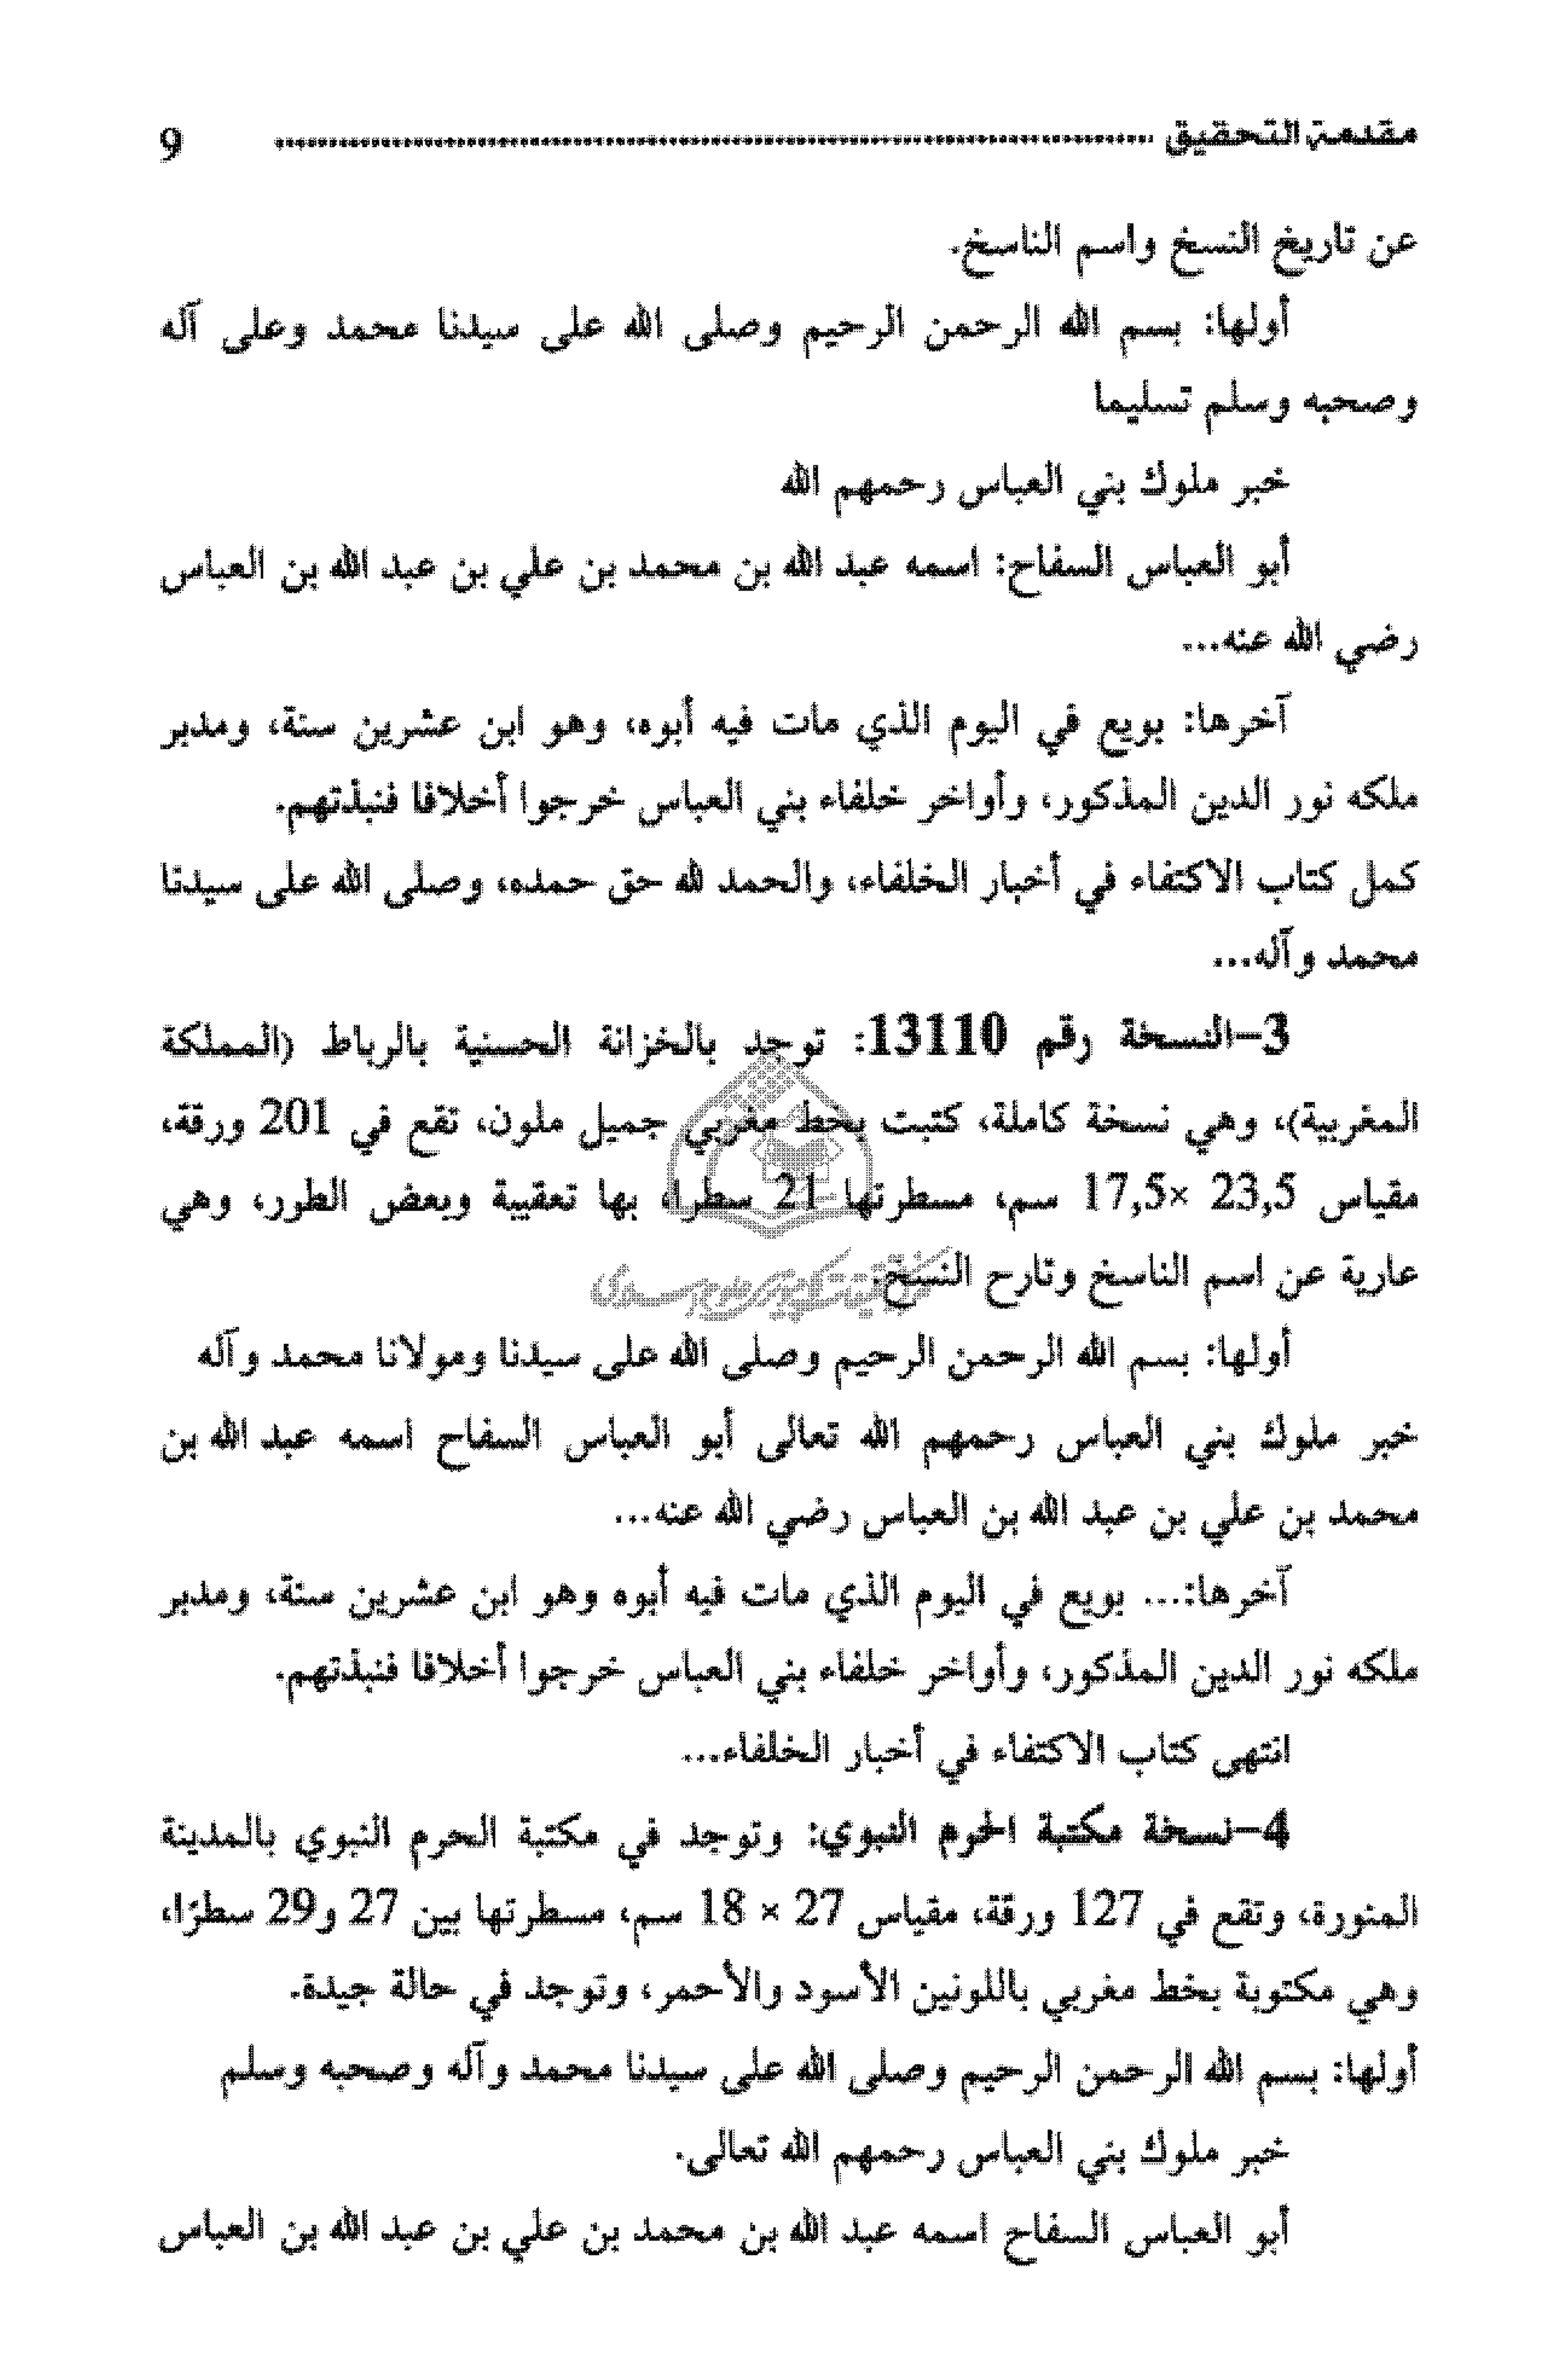 مقدمة التحقيق ---------- 9
عن تاريخ النسخ واسم الناسخ.
أولها: بسم الله الرحمن الرحيم وصلى الله على سيدنا محمد وعلى آله
وصحبه وسلم تسليما
خبر ملوك بني العباس رحمهم الله
أبو العباس السفاح: اسمه عبد الله بن محمد بن علي بن عبد الله بن العباس
رضي الله عنه...
آخرها: بويع في اليوم الذي مات فيه أبوه، وهو ابن عشرين سنة، ومدبر
ملكه نور الدين المذكور، وأواخر خلفاء بني العباس خرجوا أخلاقا فنبذتهم.
كمل كتاب الاكتفاء في أخبار الخلفاء، والحمد لله حق حمده، وصلى الله على سيدنا
محمد وآله...
3-النسخة رقم 13110: توجد بالخزانة الحسنية بالرباط (المملكة
المغربية)، وهي نسخة كاملة، كتبت بخط مغربي جميل ملون، تقع في 201 ورقة،
مقياس 23,5 ×17,5 سم، مسطرتها 21 سطرا، بها تعقيبة وبعض الطرر، وهي
عارية عن اسم الناسخ وتارح النسخ.
أولها: بسم الله الرحمن الرحيم وصلى الله على سيدنا ومولانا محمد وآله
خبر ملوك بني العباس رحمهم الله تعالى أبو العباس السفاح اسمه عبد الله بن
محمد بن علي بن عبد الله بن العباس رضي الله عنه...
آخرها:... بويع في اليوم الذي مات فيه أبوه وهو ابن عشرين سنة، ومدبر
ملكه نور الدين المذكور، وأواخر خلفاء بني العباس خرجوا أخلاقا فنبذتهم.
انتهى كتاب الاكتفاء في أخبار الخلفاء...
4-نسخة مكتبة الحرم النبوي: وتوجد في مكتبة الحرم النبوي بالمدينة
المنورة، وتقع في 127 ورقة، مقياس 27 × 18 سم، مسطرتها بين 27 و29 سطرًا،
وهي مكتوبة بخط مغربي باللونين الأسود والأحمر، وتوجد في حالة جيدة.
أولها: بسم الله الرحمن الرحيم وصلى الله على سيدنا محمد وآله وصحبه وسلم
خبر ملوك بني العباس رحمهم الله تعالى.
أبو العباس السفاح اسمه عبد الله بن محمد بن علي بن عبد الله بن العباس